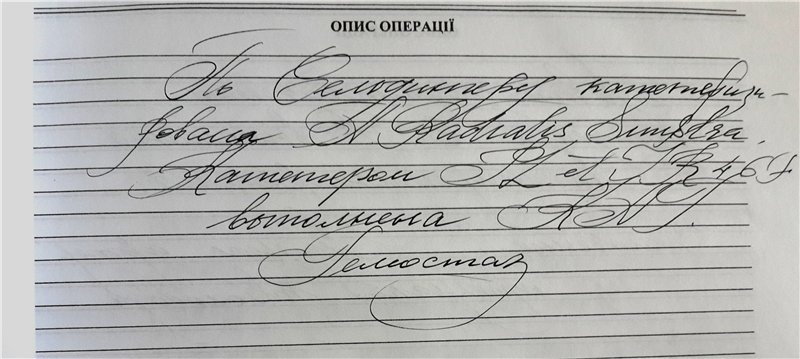 ОПИС ОПЕРАЦІЇ
По Сельдингеру катетеризи-
рована A. Radialis Sinistra.
Катетером
выполнена КАГ.
Гемостаз